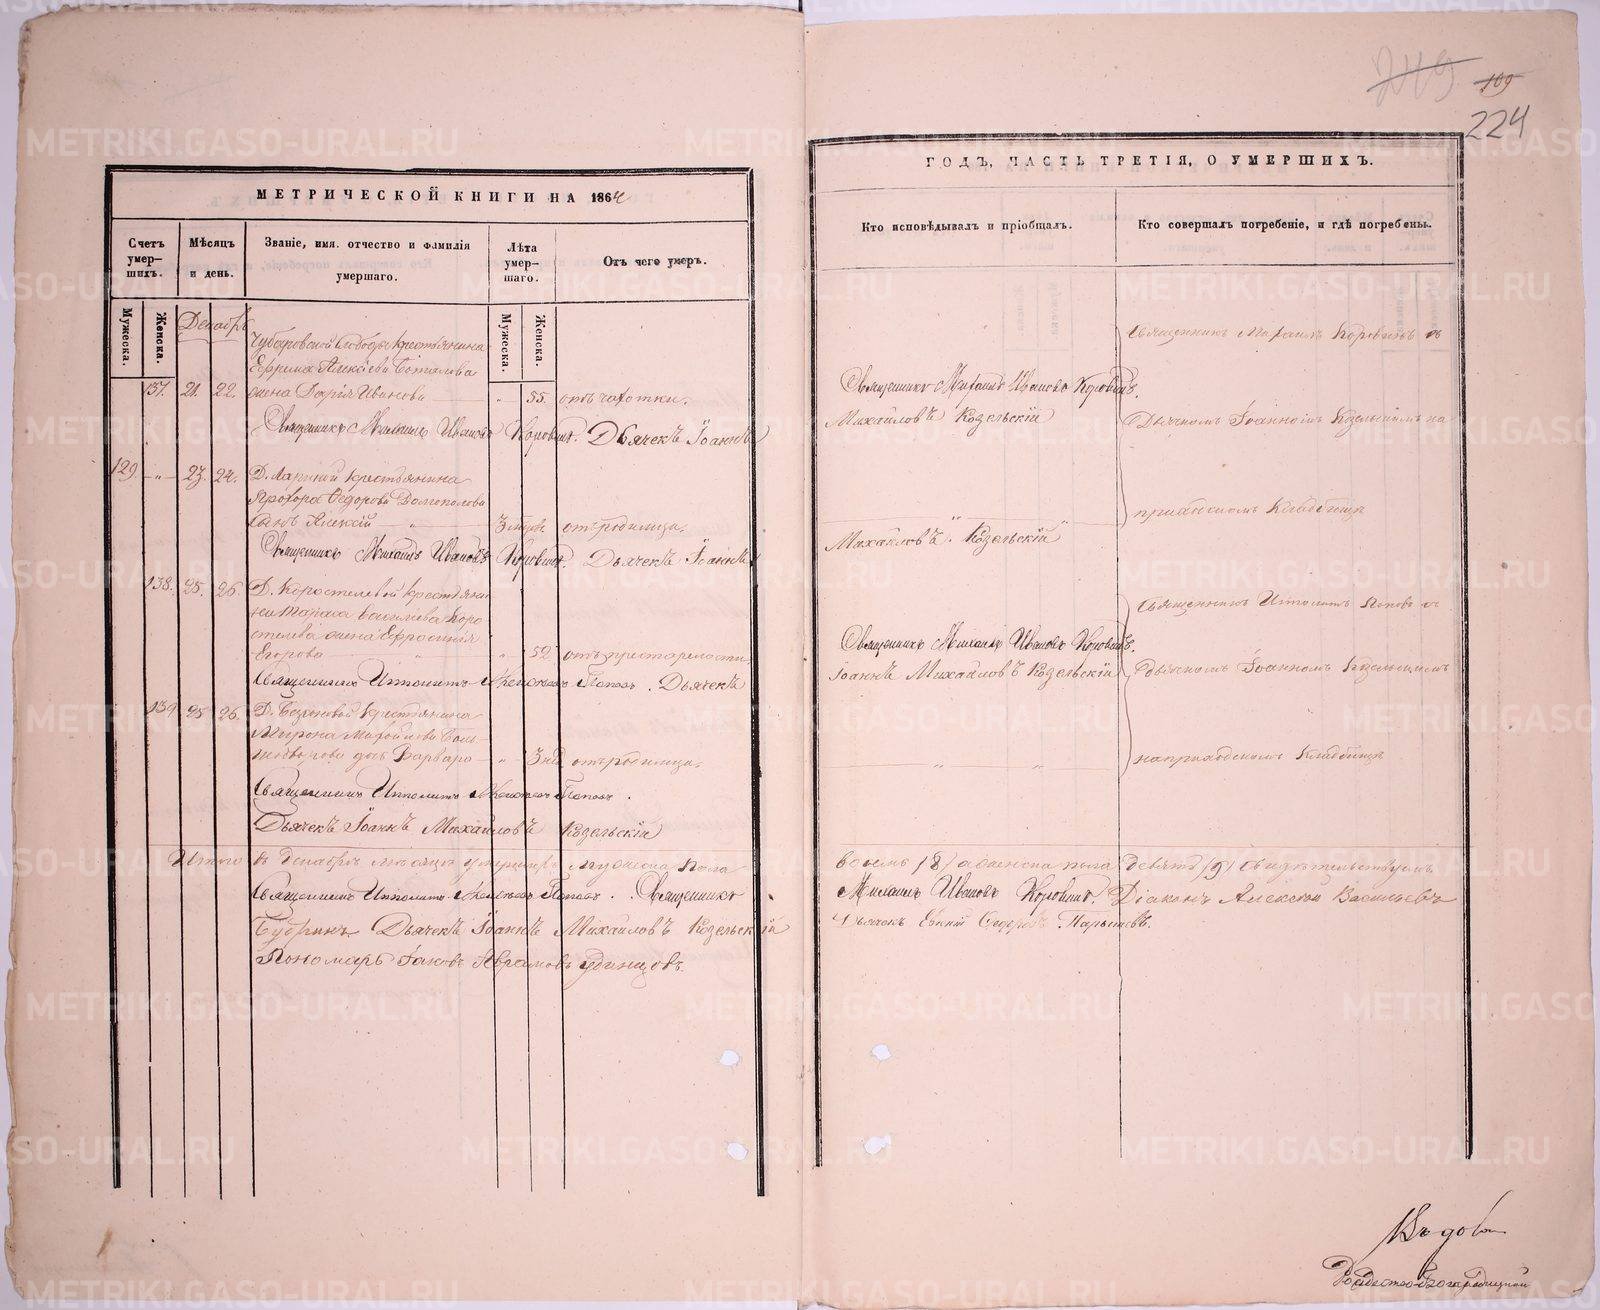 249 109
224
МЕТРИЧЕСКОЙ КНИГИ НА 1864
ГОДЪ, ЧАСТЬ ТРЕТІЯ, О УМЕРШИХЪ.
Счетъ умер-
шихъ.
Мѣсяцъ
и день.
Званіе, имя. отчество и фамилія
умершаго.
Лѣта
умер-
шаго.
Отъ чего умеръ.
Кто исповѣдывалъ и пріобщалъ.
Кто совершалъ погребеніе, и гдѣ погребены.
Мужеска.
Женска.
Мужеска.
Женска.
Декабрь
Чубаровской слободы крестьянина
Ефрима Алексіева
137. 21. 22. жена Дарія Иванова 55. отъ чахотки.
Священникъ Михаилъ Ивановъ Коровинъ. Дьячекъ Іоаннъ
Священникъ Михаилъ Ивановъ Коровинъ.
Михайловъ Козельскій
Священникъ Михаилъ Коровинъ съ
Дьячкомъ Іоанномъ Козельскимъ на
приходскомъ Кладбищѣ
129. 23. 24. Д. крестьянина
Прохора Федорова Долгополова
сынъ Алексій отъ родимца.
Священникъ Михаилъ Ивановъ Коровинъ. Дьячекъ Іоаннъ
Михайловъ. Козельскій
138. 25. 26. Д. Коростелевой крестьяни
на Тараса Васильева Коро
стелева жена Ефросинія
Егорова 52 отъ престарелости
Священникъ Ипполитъ Попов. Дьячекъ
Священникъ Михаилъ Ивановъ Коровинъ.
Іоаннъ Михайловъ Козельскій
Священникъ Ипполитъ Поповъ съ
Дьячкомъ Іоанномъ Козельскимъ
на приходскомъ Кладбищѣ
139 25 26. крестьянина
Мирона Михайлова
дочь Варвара 3 нед отъ родимца.
Священникъ Ипполитъ Попов.
Дьячекъ Іоаннъ Михайловъ Козельскій
Итого въ Декабрѣ мѣсяцѣ умершихъ мужеска пола
восемь (8) а женска пола девять (9) свидѣтельствуемъ
Священникъ Ипполитъ Попов. Священникъ
Михаилъ Ивановъ Коровинъ. Діаконъ Алексѣй Васильевъ
Бубринъ Дьячекъ Іоаннъ Михайловъ Козельскій
Дьячок
Пономарь Іаковъ Аврамовъ Удинцовъ.
Рождество-Богородицкой
METRIKI.GASO-URAL.RU